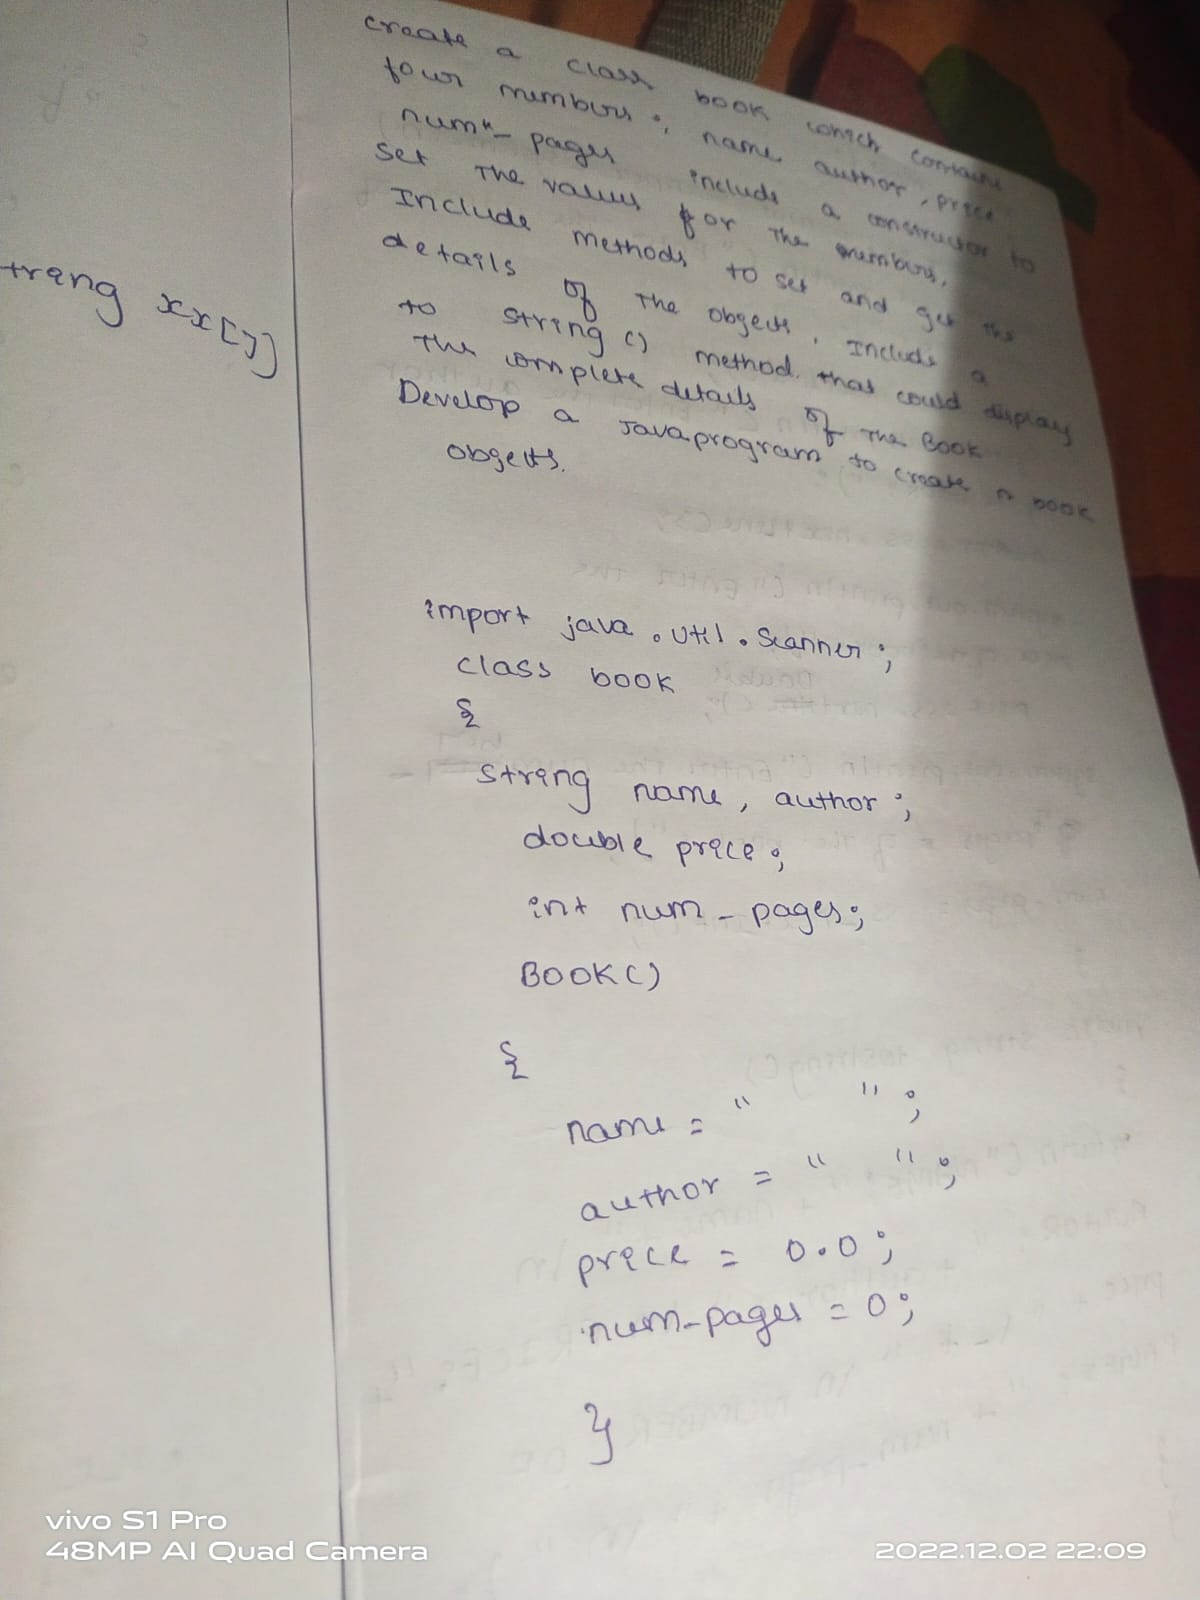 create a class book which contains
four members: name, author, price
num-pages include a constructor to
set the values for the members.
Include methods to set and get the
details of the objects. Include a
to string () method. that could display
the complete details of the Book
Develop a Java program to create n book
objects.
tring xx[y]
import java.util.Scanner;
class book
{
string name, author;
double price;
int num-pages;
BOOK()
{
name = " ";
author = " ";
price = 0.0;
num-pages = 0;
}
vivo S1 Pro
48MP AI Quad Camera
2022.12.02 22:09